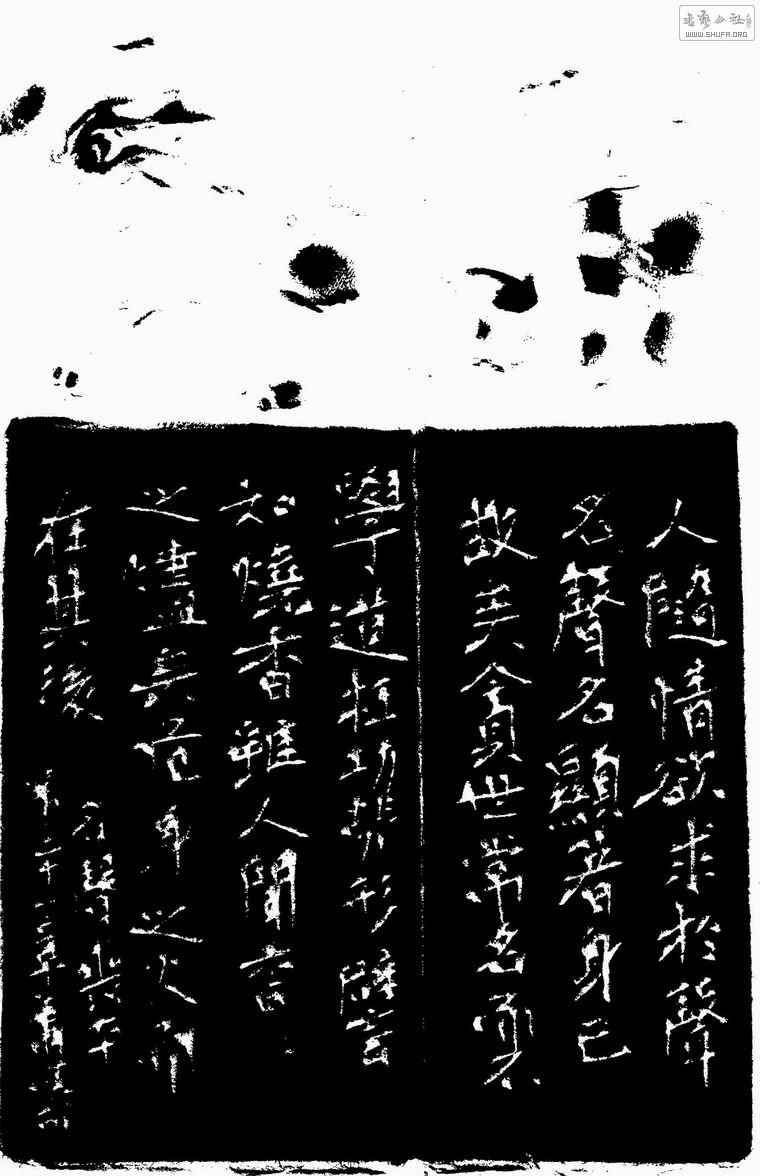 人隨情欲求於聲
名聲名顯著身已
故矣貪世常名而不
學道枉功勞形譬
如燒香雖人聞香
之燼矣危身之火而
在其後
名聲喪本
第二十
書藝公社
WWW.SHUFA.ORG